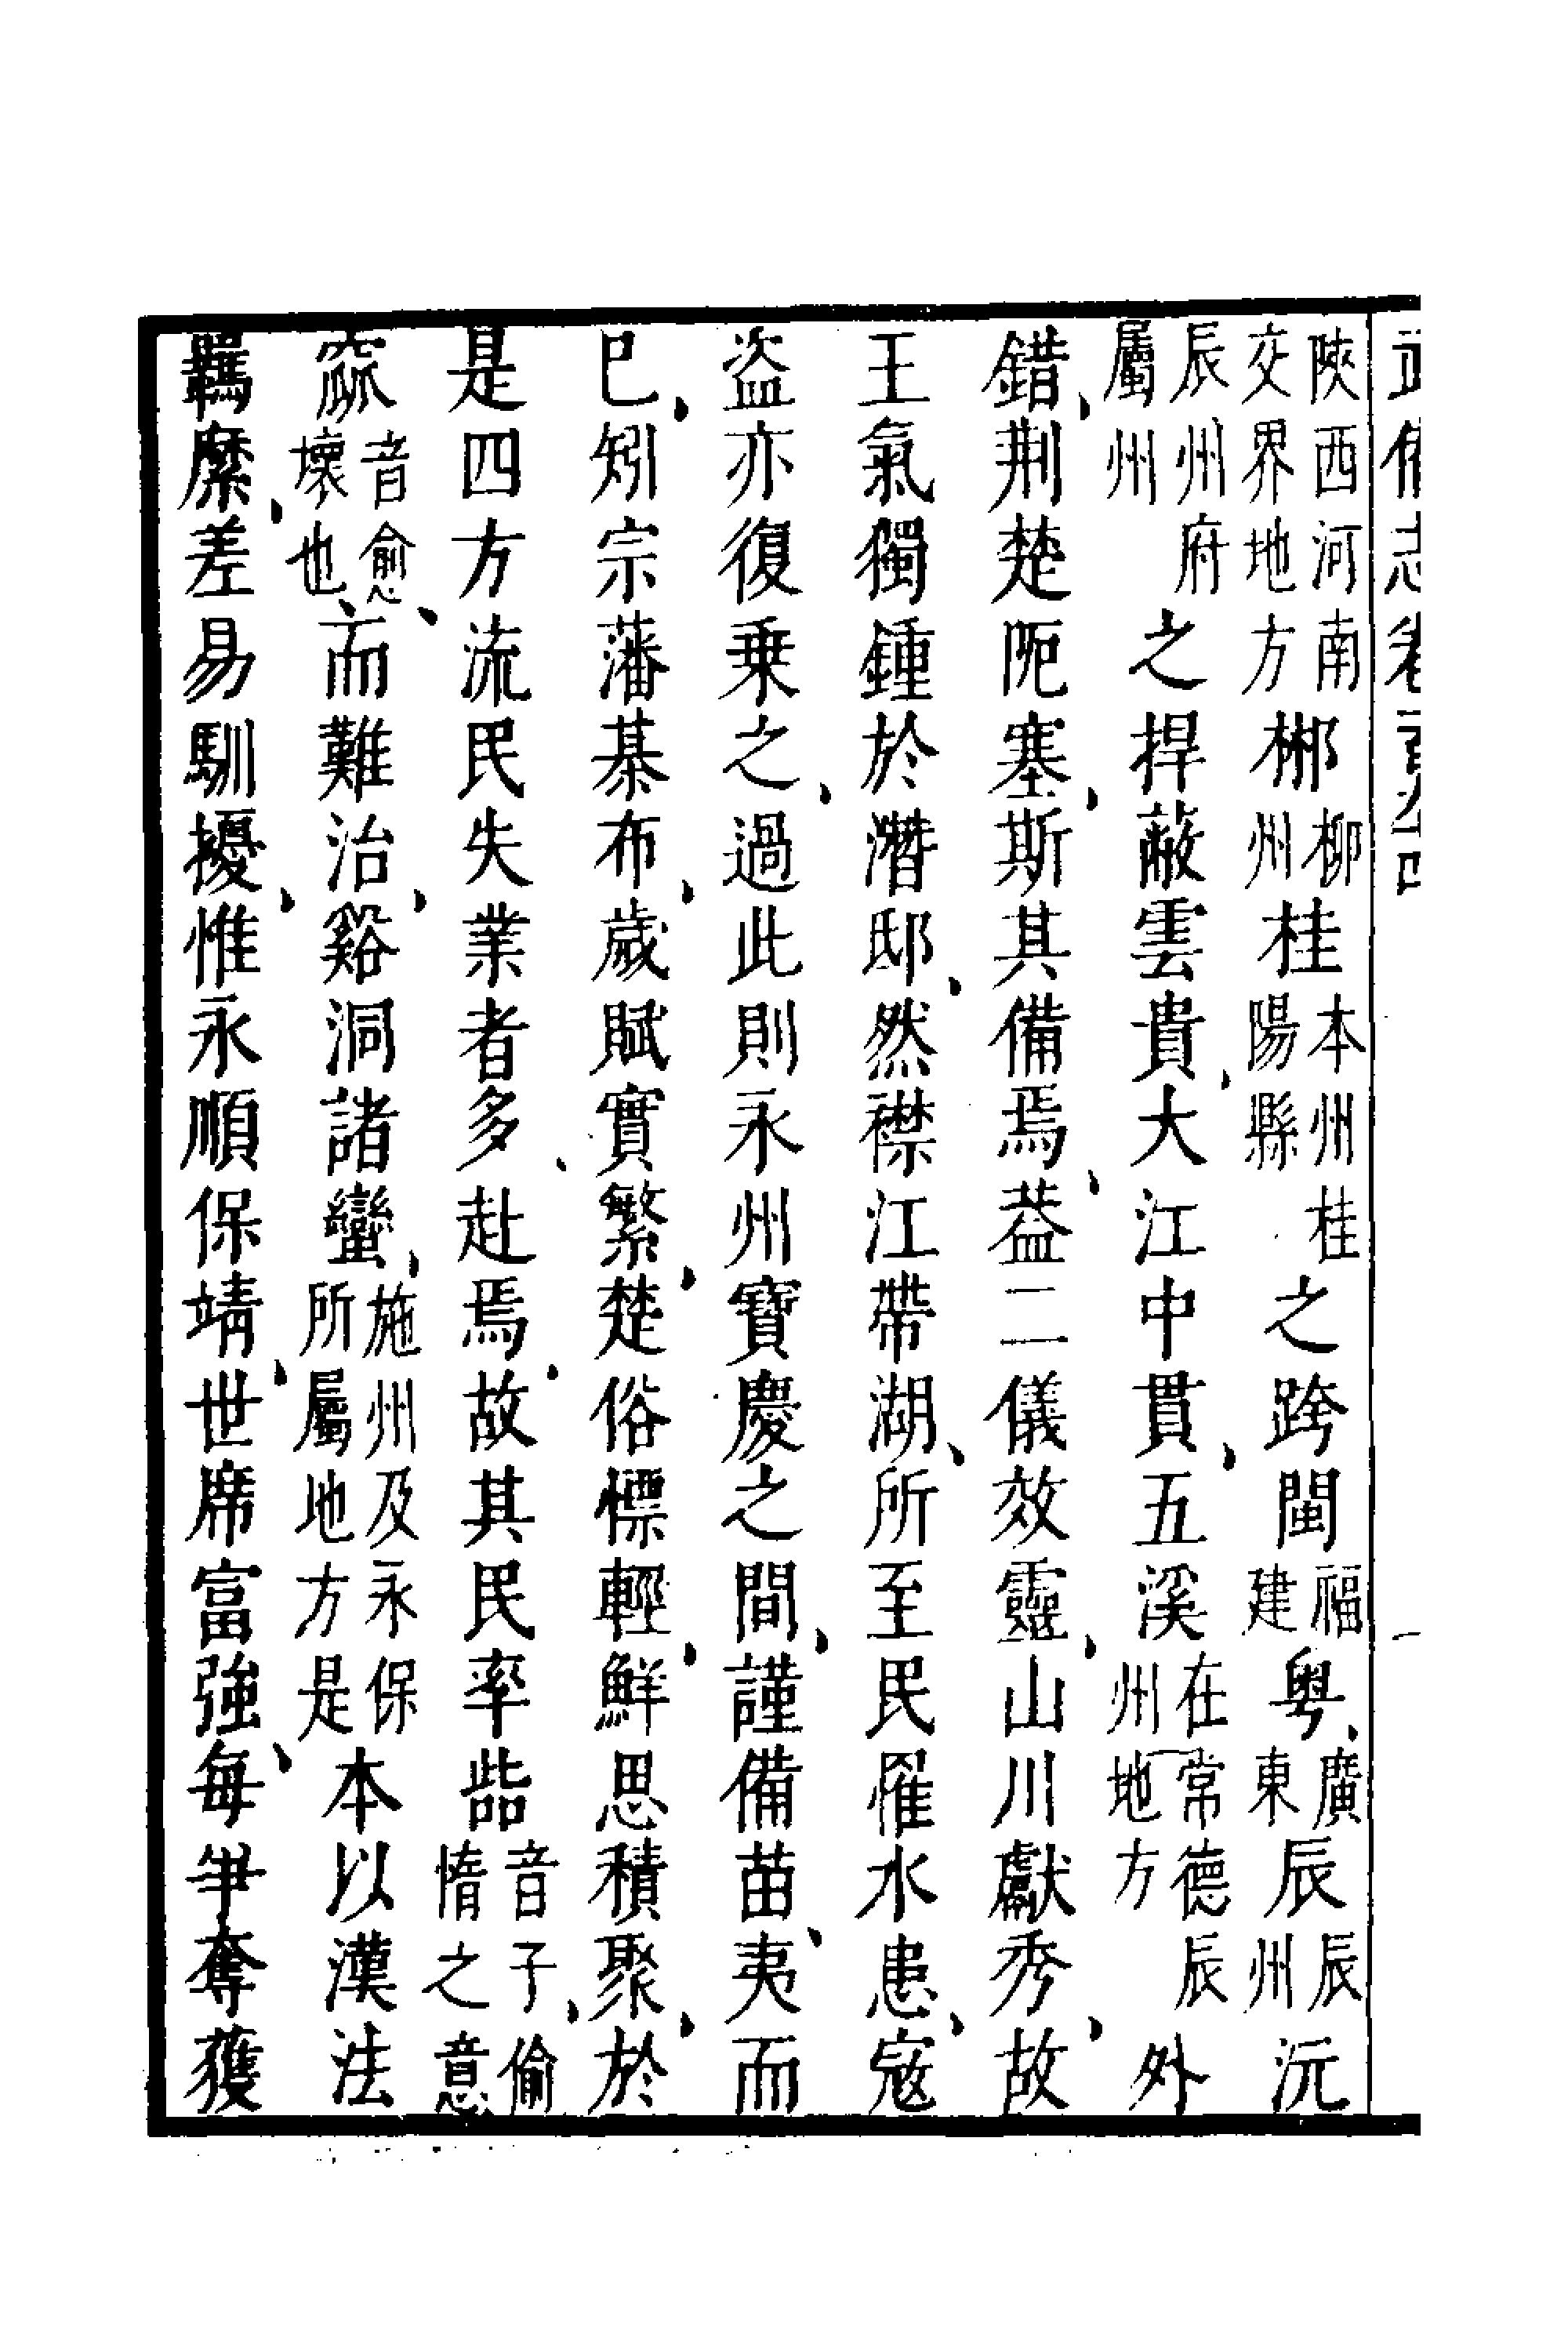 陝西河南交界地方郴柳州桂本州桂陽縣之跨閩福建粵廣東辰辰州沅
辰州府屬州之捍蔽雲貴大江中貫五溪在常德辰州地方外
錯荆楚阨塞斯其備焉葢二儀效靈山川獻秀故
王氣獨鍾於潛邸然襟江帶湖所至民罹水患寇
盗亦復乗之過此則永州寶慶之間謹備苗夷而
巳矧宗藩棊布歲賦實繁楚俗慓輕鮮思積聚於
是四方流民失業者多赴焉故其民率啙音子偷惰之意
窳音愈壞也而難治谿洞諸蠻施州及永保所屬地方是本以漢法
羈縻差易馴擾惟永順保靖世席富強每爭奪獲